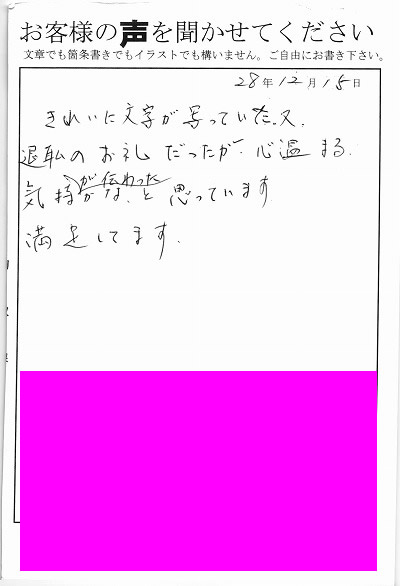 お客様の声を聞かせてください
文章でも箇条書きでもイラストでも構いません。ご自由にお書き下さい。
28年12月15日
きれいに文字が写っていた。又、
退職のお礼だったが、心温まる
気持が伝わったかな、と思っています
満足してます。